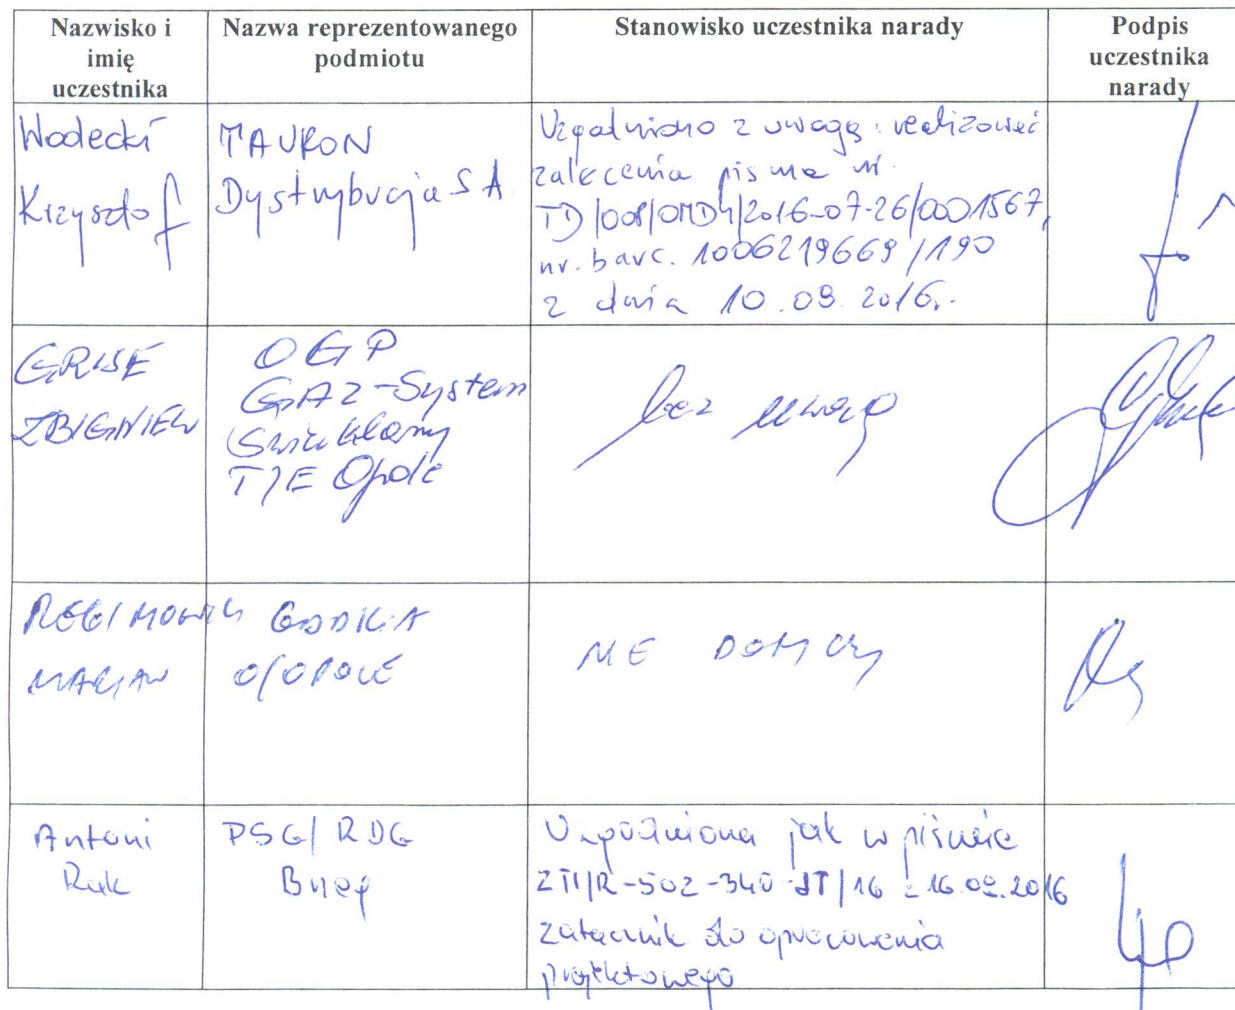 Nazwisko i
imię
uczestnika
Nazwa reprezentowanego
podmiotu
Stanowisko uczestnika narady
Podpis
uczestnika
narady
Wodecki
Krzysztof
TAURON
Dystrybucja S.A
Uzgodniono z uwagą: realizować
zalecenia pisma nr.
TD/OOP/OMD4/2016-07-26/0001567,
nr. barc. 1006219669/190
z dnia 10.08.2016r.
ZBIGNIEW
OGP
GAZ-System
Świerklany
TJE Opole
bez uwag
MARIAN
GDDKiA
O/OPOLE
NIE DOTYCZY
Antoni
Rak
PSG/RDG
Brzeg
Uzgodniona jak w piśmie
ZTI/R-502-340-JT/16 z 16.08.2016
załącznik do opracowania
projektowego